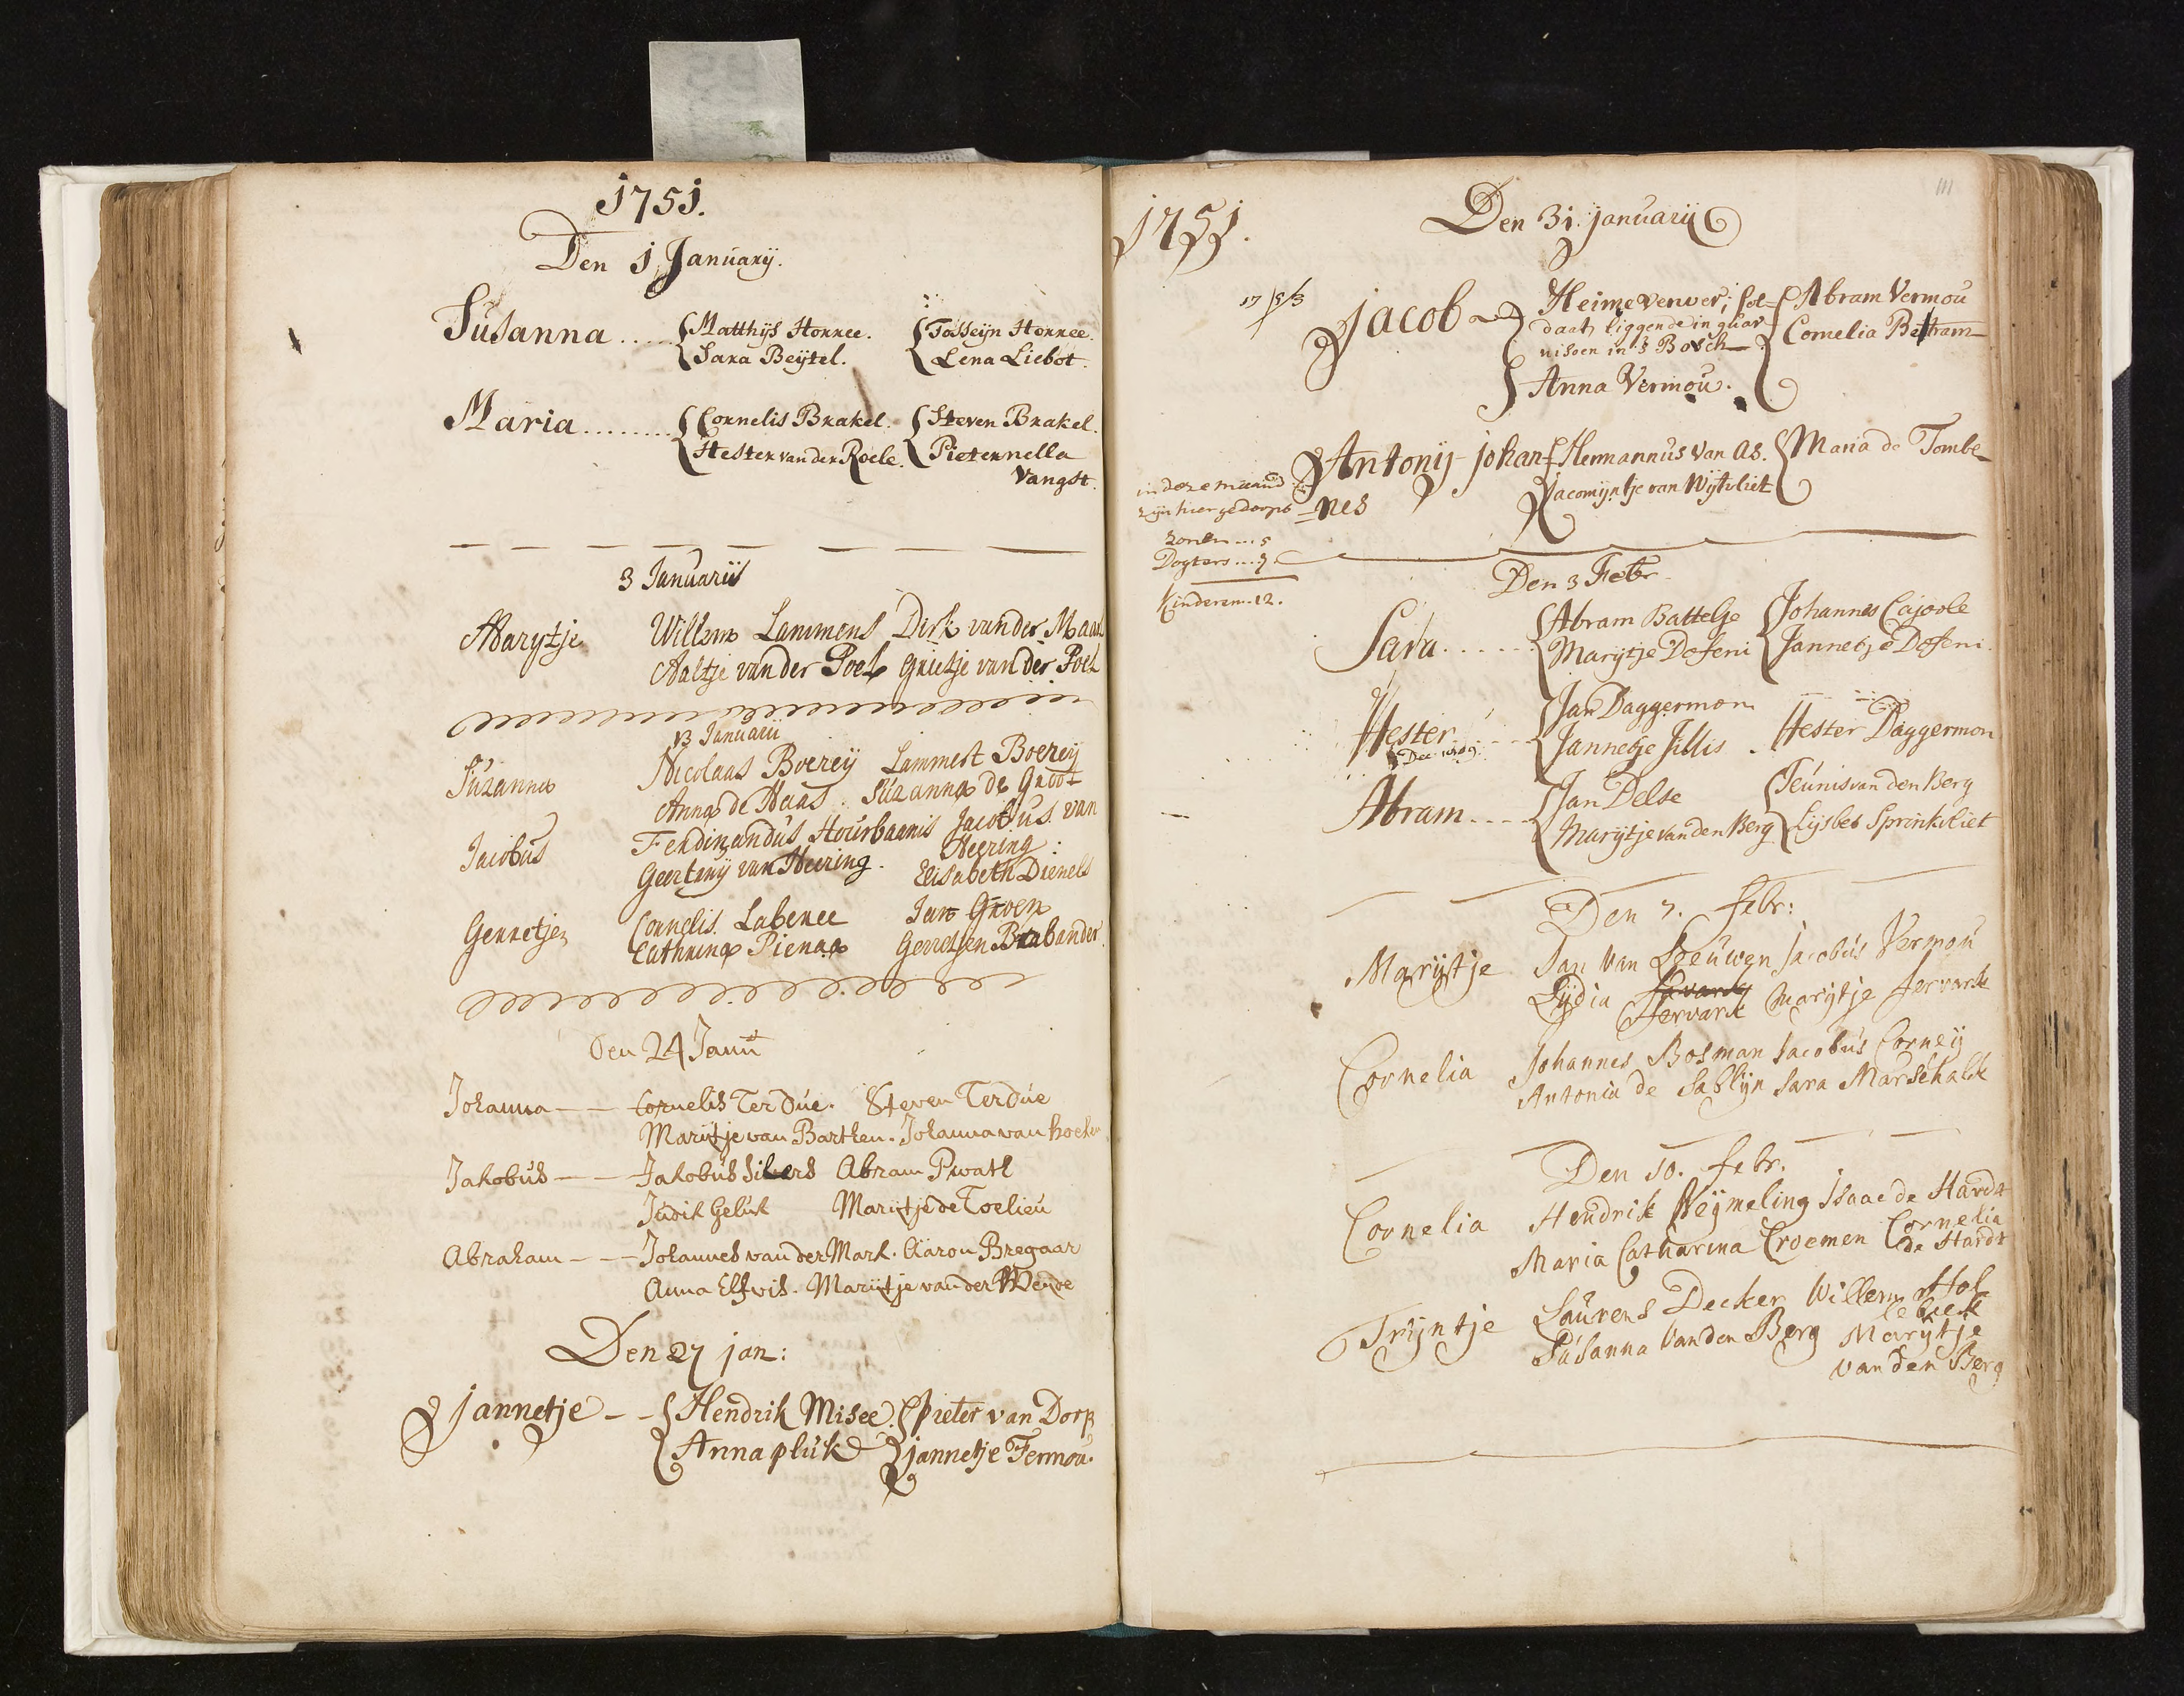 1751.
Den 1 January.
Susanna ..... Matthijs Honnee. Josseijn Honnee.
Sara Beijtel. Lena Liebot.
Maria ........ Cornelis Brakel. Steven Brakel.
Hester van der Roele. Pieternella
Vangst.
3 Januarii
Marytje Willem Lammens Dirk van der Maas
Aaltje van der Poel Grietje van der Poel
13 Januarii
Suzanna Nicolaas Boereij Lammert Boereij
Anna de Haas. Suzanna de Groot
Jacobus Ferdinandus Hourbaanis Jacobus van
Geertruij van Heering. Heering:
Elisabeth Dienels
Gerretjen Cornelis Labenee Jan Groen
Cathrina Pienaa Gerretjen Brabander.
Den 24 Janu
Johanna -- Cornelis Ter Due. Steven Ter Due
Marijtje van Barthen. Johanna van
Jakobus -- Jakobus Silvers Abram Pwatt
Judik Geluk Marijtje de Toelieu
Abraham -- Johannes van der Mark. Aäron Bregaar
Anna Elfvis. Marijtje van der Wende
Den 27 jan:
jannetje -- Hendrik Misee. Pieter van Dorp
Anna pluk jannetje Fermou.
111
1751.
Den 31 januarij
17 5/3
jacob Heime verwer; sol- Abram Vermou
daat, liggende in guar- Cornelia Bertram
nisoen in 's Bosch
Anna Vermou.
Antonij johan- Hermannus van As. Maria de Tombe
=nes Jacomijntje van Wijtvliet
in deze maand
zijn hier gedoopt
zonen ... 5
Dogters ... 7
Kinderen .. 12.
Den 3 Febr.
Sara ...... Abram Battelje Johannes Cajoole
Marijtje Dofeni Jannetje Dofeni.
Hester Jan Daggermon
Jannetje Jillis. Hester Daggermon
Abram .... Jan Delse Teunis van den Berg
Marijtje van den Berg Lijsbet Sprinkvliet
Den 7. febr:
Marijtje Jan van Leeuwen Jacobus Vermou
Lijdia Marijtje fervark
fervark
Cornelia Johannes Bosman Jacobus Corneij
Antonia de Sablijn Sara Marschalk
Den 10. febr.
Cornelia Hendrik Weijmeling Isaac de Hardt
Maria Catharina Croemen Cornelia
de Hardt
Trijntje Laurens Decker Willem Hol
lebiek
Susanna van den Berg Marijtje
van den Berg